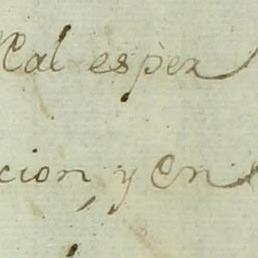 Real esper
cion, y en